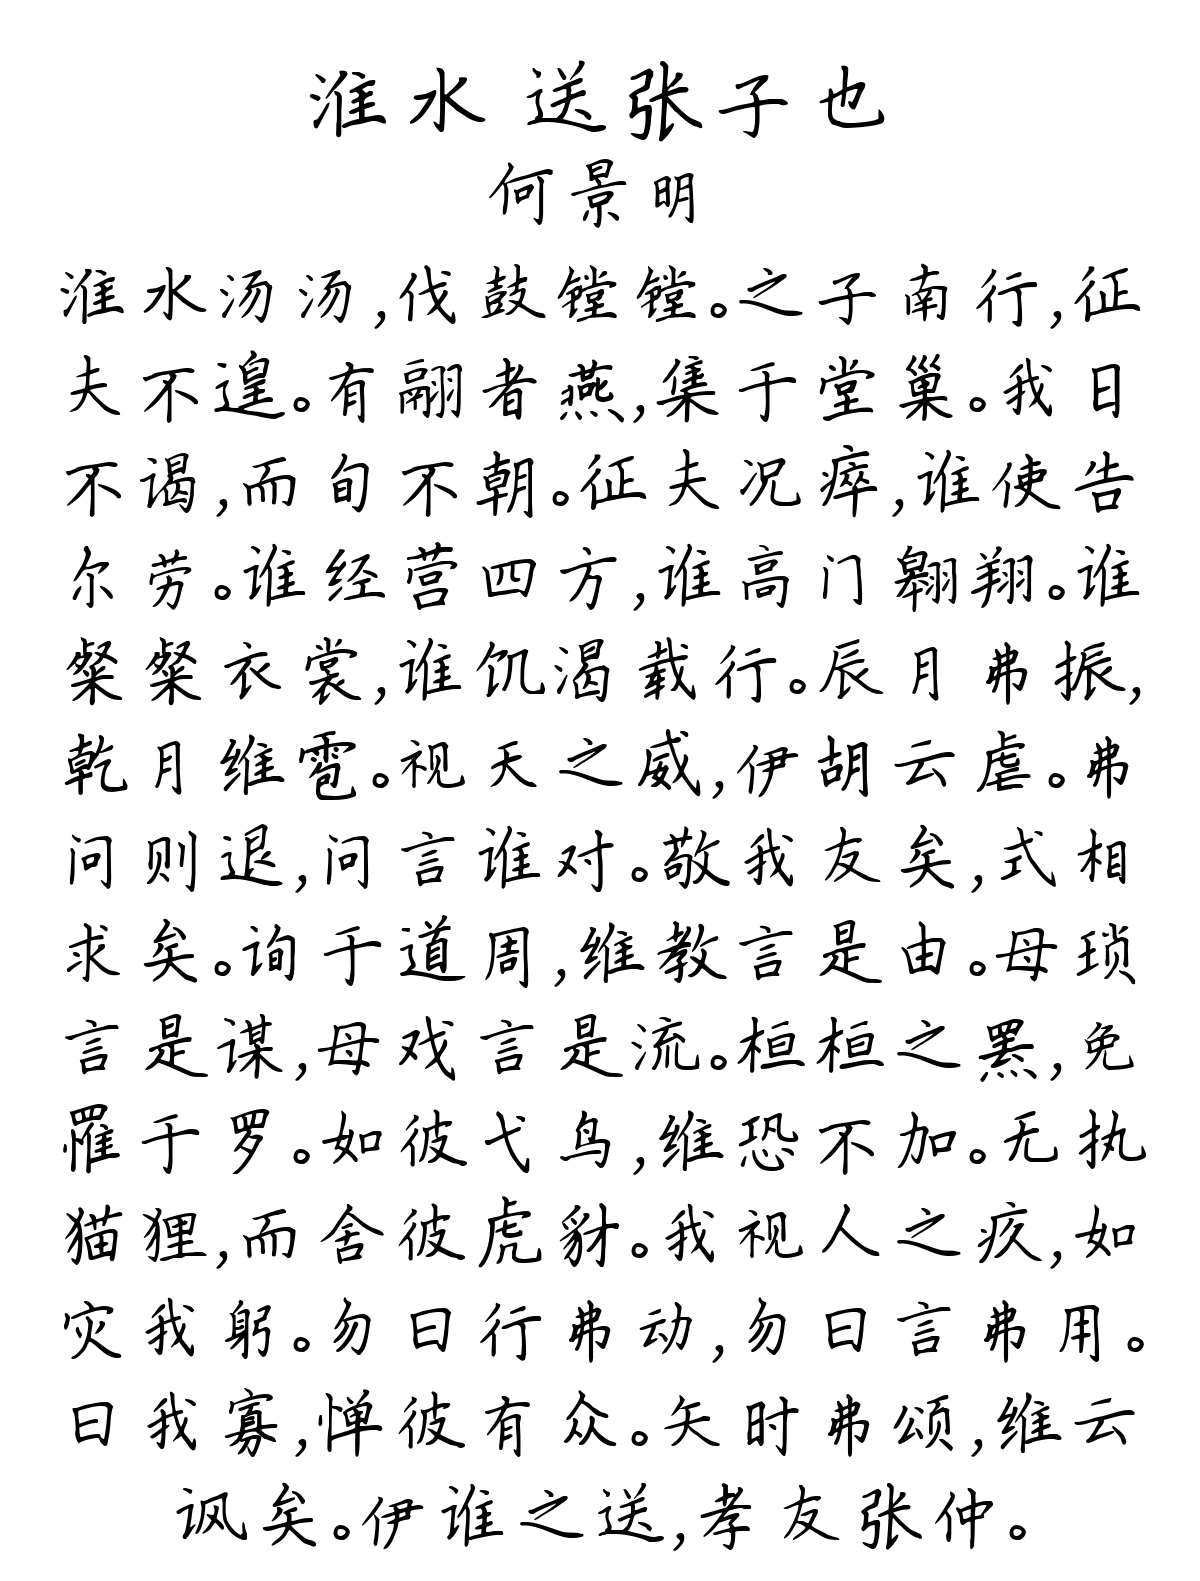 淮水 送张子也
何景明
淮水汤汤,伐鼓镗镗。之子南行,征
夫不遑。有翩者燕,集于堂巢。我日
不谒,而旬不朝。征夫况瘁,谁使告
尔劳。谁经营四方,谁高门翱翔。谁
粲粲衣裳,谁饥渴载行。辰月弗振,
乾月维雹。视天之威,伊胡云虐。弗
问则退,问言谁对。敬我友矣,式相
求矣。询于道周,维教言是由。毋琐
言是谋,毋戏言是流。桓桓之罴,免
罹于罗。如彼弋鸟,维恐不加。无执
猫狸,而舍彼虎豺。我视人之疚,如
灾我躬。勿曰行弗动,勿曰言弗用。
曰我寡,惮彼有众。矢时弗颂,维云
讽矣。伊谁之送,孝友张仲。